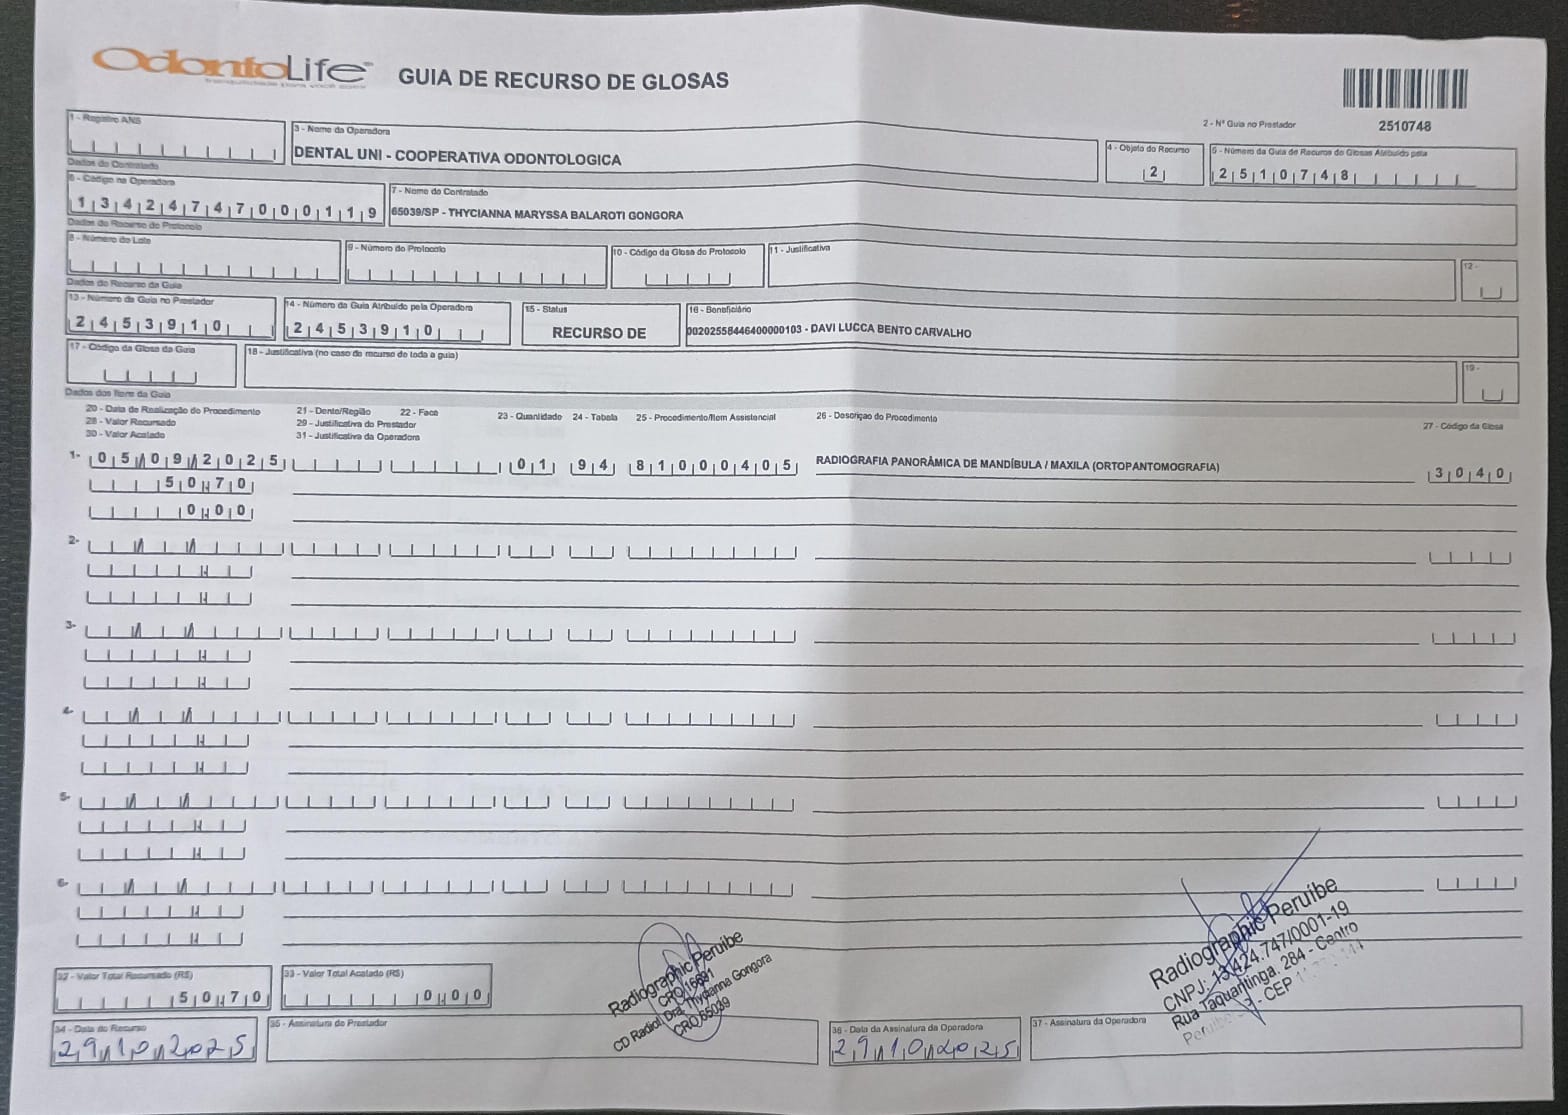 OdontoLife GUIA DE RECURSO DE GLOSAS
2 - Nº Guia no Prestador 2510748
1 - Registro ANS
3 - Nome da Operadora
DENTAL UNI - COOPERATIVA ODONTOLOGICA
4 - Objeto do Recurso
2
5 - Número da Guia de Recurso de Glosas Atribuído pela
2510748
Dados do Contratado
6 - Código na Operadora
13424747000119
7 - Nome do Contratado
65039/SP - THYCIANNA MARYSSA BALAROTI GONGORA
Dados do Recurso do Protocolo
8 - Número do Lote
9 - Número do Protocolo
10 - Código da Glosa do Protocolo
11 - Justificativa
12 -
Dados do Recurso da Guia
13 - Número da Guia no Prestador
2453910
14 - Número da Guia Atribuído pela Operadora
2453910
15 - Status
RECURSO DE
16 - Beneficiário
00202558446400000103 - DAVI LUCCA BENTO CARVALHO
17 - Código da Glosa da Guia
18 - Justificativa (no caso de recurso de toda a guia)
19 -
Dados dos Itens da Guia
20 - Data de Realização do Procedimento 21 - Dente/Região 22 - Face 23 - Quantidade 24 - Tabela 25 - Procedimento/Item Assistencial 26 - Descriçao do Procedimento 27 - Código da Glosa
28 - Valor Recursado 29 - Justificativa do Prestador
30 - Valor Acatado 31 - Justificativa da Operadora
1- 05/09/2025 01 94 81000405 RADIOGRAFIA PANORÂMICA DE MANDÍBULA / MAXILA (ORTOPANTOMOGRAFIA) 3040
50,70
0,00
2-
3-
4-
5-
6-
32 - Valor Total Recursado (R$)
50,70
33 - Valor Total Acatado (R$)
0,00
34 - Data do Recurso
29/10/2025
35 - Assinatura do Prestador
Radiographic Peruibe
CD Radiol. Dra. Thycianna Gongora
CRO 65039
36 - Data da Assinatura da Operadora
29/10/2025
37 - Assinatura da Operadora
Radiographic Peruibe
CNPJ: 13.424.747/0001-19
Rua Taquaritinga, 284 - Centro
CEP